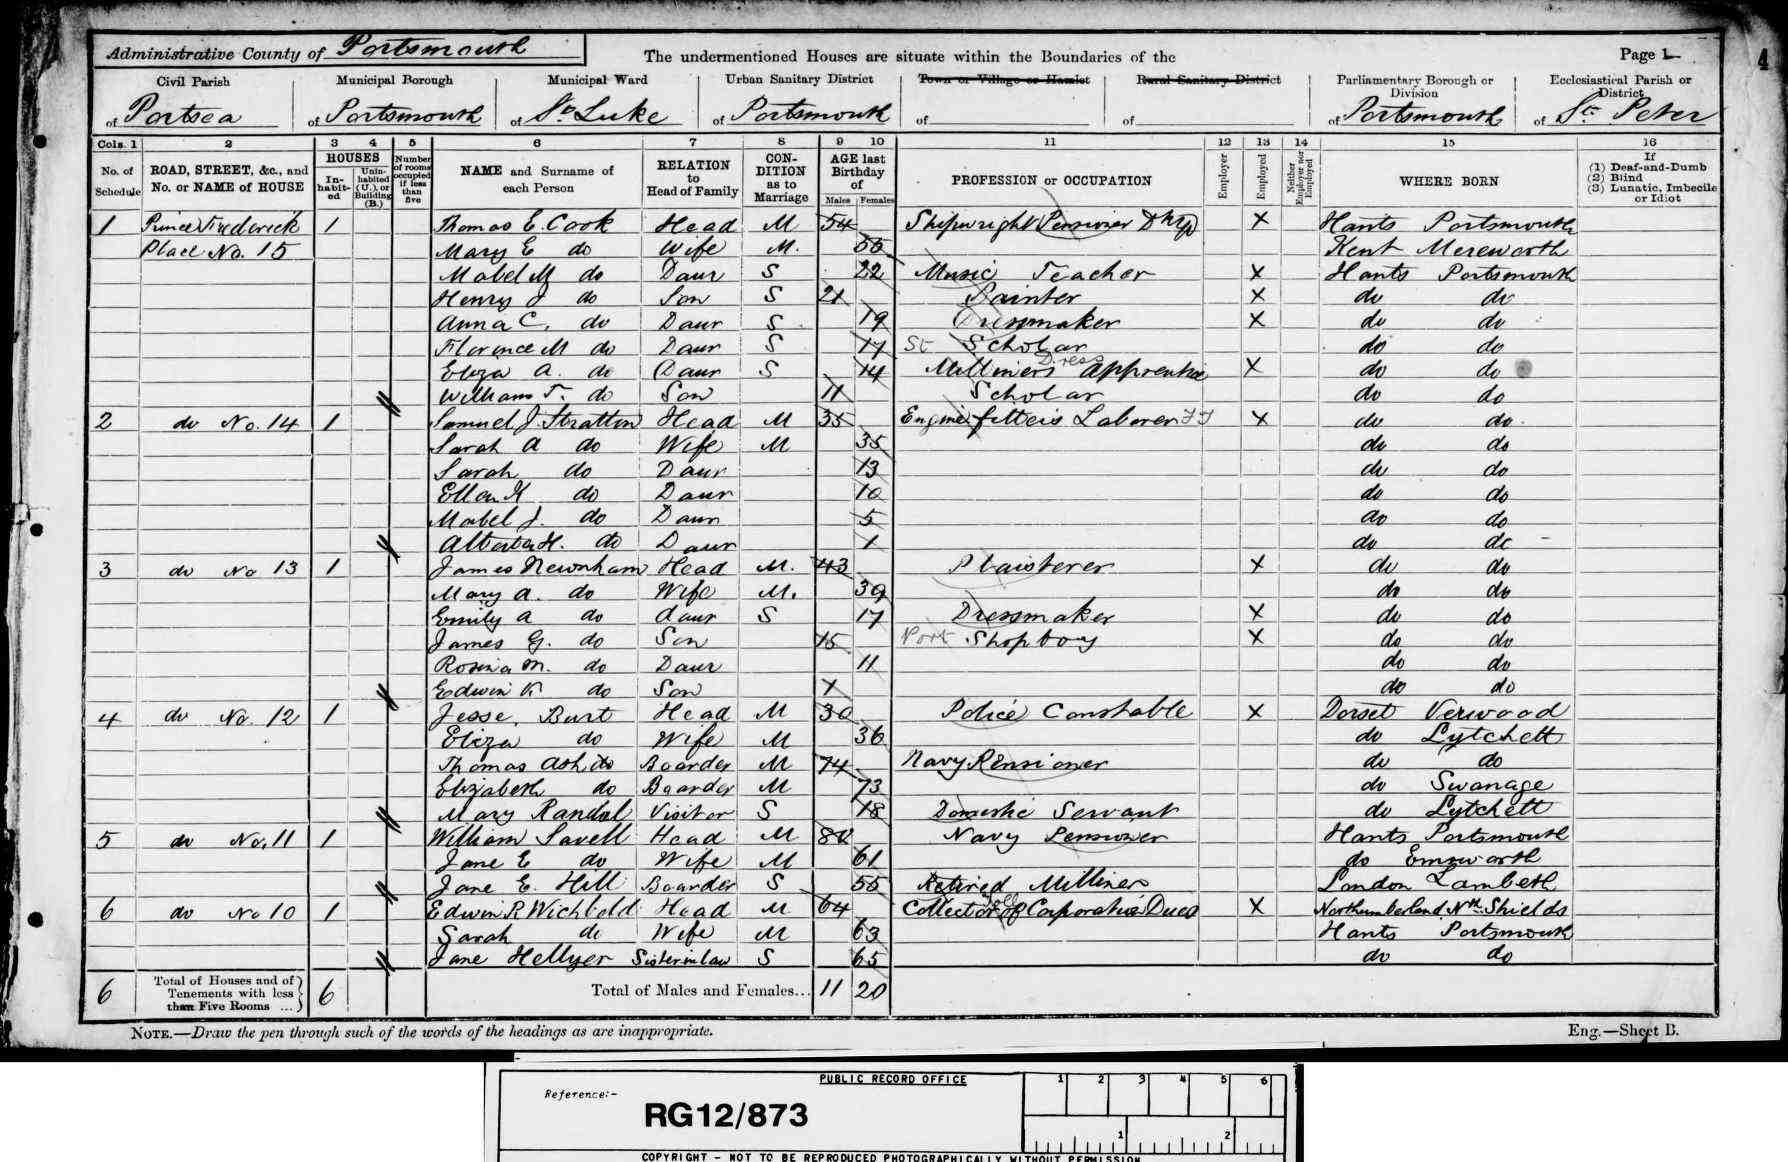 Administrative County of Portsmouth
The undermentioned Houses are situate within the Boundaries of the
Page 1
4
Civil Parish
Municipal Borough
Municipal Ward
Urban Sanitary District
Town or Village or Hamlet
Rural Sanitary District
Parliamentary Borough or Division
Ecclesiastical Parish or District
of Portsea
of Portsmouth
of St Luke
of Portsmouth
of
of
of Portsmouth
of St Peter
Cols. 1 2 3 4 5 6 7 8 9 10 11 12 13 14 15 16
No. of Schedule
ROAD, STREET, &c., and No. or NAME of HOUSE
HOUSES
Inhabited
Uninhabited (U.), or Building (B.)
Number of rooms occupied if less than five
NAME and Surname of each Person
RELATION to Head of Family
CONDITION as to Marriage
AGE last Birthday of
Males Females
PROFESSION or OCCUPATION
Employer
Employed
Neither Employer nor Employed
WHERE BORN
If
(1) Deaf-and-Dumb
(2) Blind
(3) Lunatic, Imbecile or Idiot
1 Prince Frederick 1 Thomas E. Cook Head M 54 Shipwright Pensioner X Hants Portsmouth
Place No. 15 Mary E do Wife M. 55 Kent Mereworth
Mabel M do Daur S 22 Music Teacher X Hants Portsmouth
Henry J do Son S 21 Painter X do do
Anna C. do Daur S 19 Dressmaker X do do
Florence M do Daur S 17 St Scholar do do
Eliza A. do Daur S 14 Milliners Dress Apprentice X do do
William T. do Son 11 Scholar do do
2 do No. 14 1 Samuel J. Stratton Head M 35 Engine fitters Laborer X do do
Sarah A do Wife M 35 do do
Sarah do Daur 13 do do
Ellen K do Daur 10 do do
Mabel J. do Daur 5 do do
Alberta H. do Daur 1 do do
3 do No 13 1 James Newnham Head M. 43 Plaisterer X do do
Mary A. do Wife M. 39 do do
Emily A do daur S 17 Dressmaker X do do
James G. do Son 15 Port Shop boy X do do
Rosina M. do Daur 11 do do
Edwin do Son do do
4 do No. 12 1 Jesse, Burt Head M 30 Police Constable X Dorset Verwood
Eliza do Wife M 36 do Lytchett
Thomas Ash do Boarder M 74 Navy Pensioner do do
Elizabeth do Boarder M 73 do Swanage
Mary Randal Visitor S 18 Domestic Servant do Lytchett
5 do No. 11 1 William Savell Head M 80 Navy Pensioner Hants Portsmouth
Jane E do Wife M 61 do Emsworth
Jane E. Hill Boarder S 55 Retired Milliner London Lambeth
6 do No 10 1 Edwin R Wichbold Head M 64 Collector of Corporation Dues X Northumberland, Nth Shields
Sarah do Wife M 63 Hants Portsmouth
Jane Hellyer Sister in law S 65 do do
6 Total of Houses and of Tenements with less than Five Rooms ... 6 Total of Males and Females... 11 20
NOTE.—Draw the pen through such of the words of the headings as are inappropriate.
Eng.—Sheet B.
PUBLIC RECORD OFFICE
1 2 3 4 5 6
Reference:-
RG12/873
1 2
COPYRIGHT - NOT TO BE REPRODUCED PHOTOGRAPHICALLY WITHOUT PERMISSION